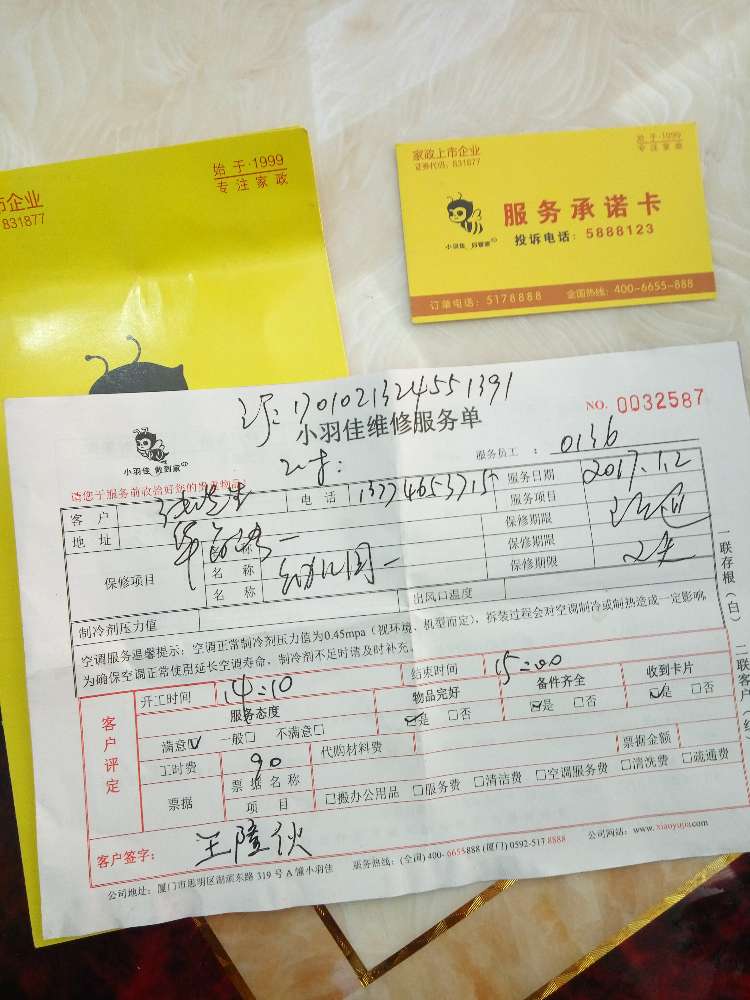 市企业
831877
始于·1999
专注家政
家政上市企业
证券代码：831877
始于·1999
专注家政
小羽佳 好管家
服务承诺卡
投诉电话：5888123
订单电话：5178888 全国热线：400-6655-888
1701021324551391
小羽佳 做到家
小羽佳维修服务单
NO. 0032587
请您于服务前收拾好您的贵重物品！
服务员工： 0136
客户 电话 服务日期 2017.1.2
地址 服务项目
保修项目 名称 幼儿园 保修期限
名称 保修期限
名称 保修期限
制冷剂压力值 出风口温度
空调服务温馨提示：空调正常制冷剂压力值为0.45mpa（视环境、机型而定），拆装过程会对空调制冷或制热造成一定影响，
为确保空调正常使用延长空调寿命，制冷剂不足时请及时补充。
客户评定
开工时间 14:10 结束时间 15:00
服务态度 物品完好 备件齐全 收到卡片
满意☑ 一般□ 不满意□ ☑是 □否 ☑是 □否 ☑是 □否
工时费 90 代购材料费
票据 票据名称 票据金额
项目 □搬办公用品 □服务费 □清洁费 □空调服务费 □清洗费 □疏通费
客户签字： 王隆伙
公司地址：厦门市思明区湖滨东路 319 号 A 幢小羽佳 服务热线：(全国) 400-6655888 (厦门) 0592-517 8888 公司网站：www.xiaoyujia.com
一联存根（白）
二联客户